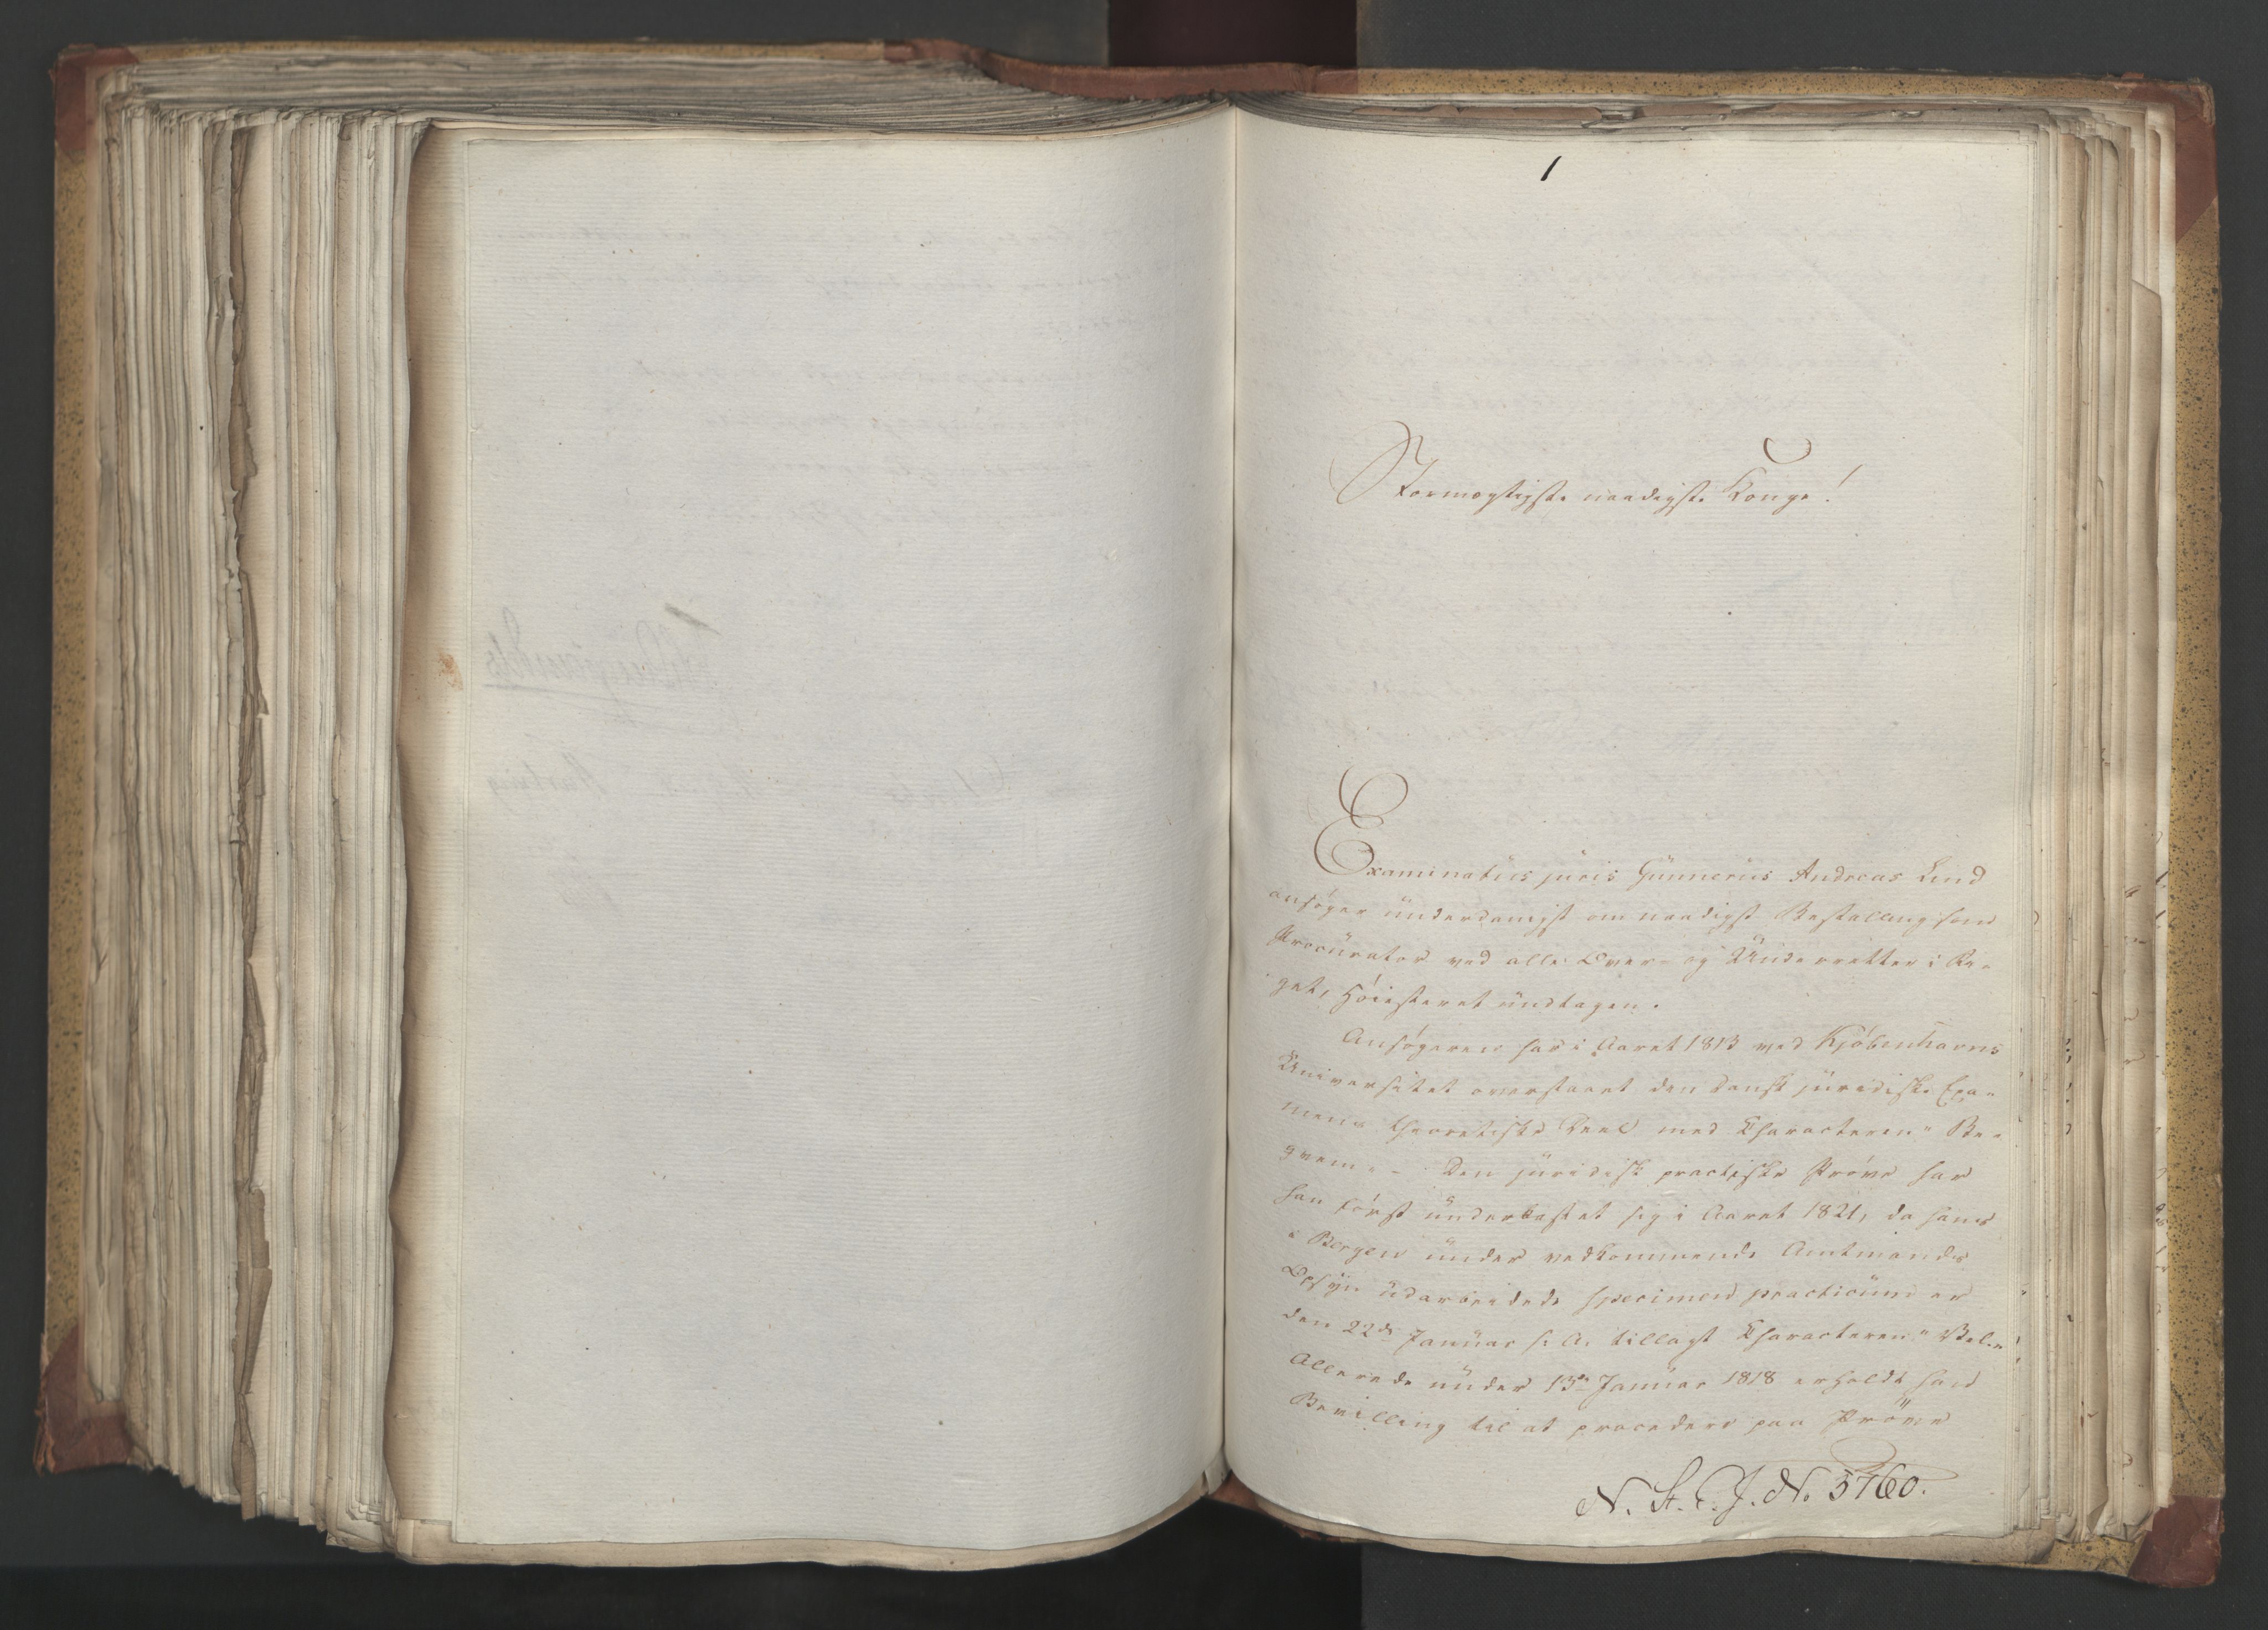 1
Stormægtigste naadigste Konge!
Examinatus juris Gunnerus Andreas Lind
ansøger underdanigst om naadigst Bestalling som
Procurator ved alle Over- og Underretter i Ri-
get, Höiesteret undtagen.
Ansøgeren har i Aaret 1813 ved Kjöbenhavns
Universitet overstaaet den dansk juridiske Exa-
mens theoretiske Deel med Characteren "Be-
qvem". - Den juridisk practiske Pröve har
han först underkastet sig i Aaret 1821, da hans
i Bergen under vedkommende Amtmands
Opsyn udarbeidede specimen practicum er
den 22de Januar s. A. tillagt Characteren "Vel."
Allerede under 13de Januar 1818 erholdt han
Bevilling til at procedere paa Pröve
N. St. C. J. No 5760.